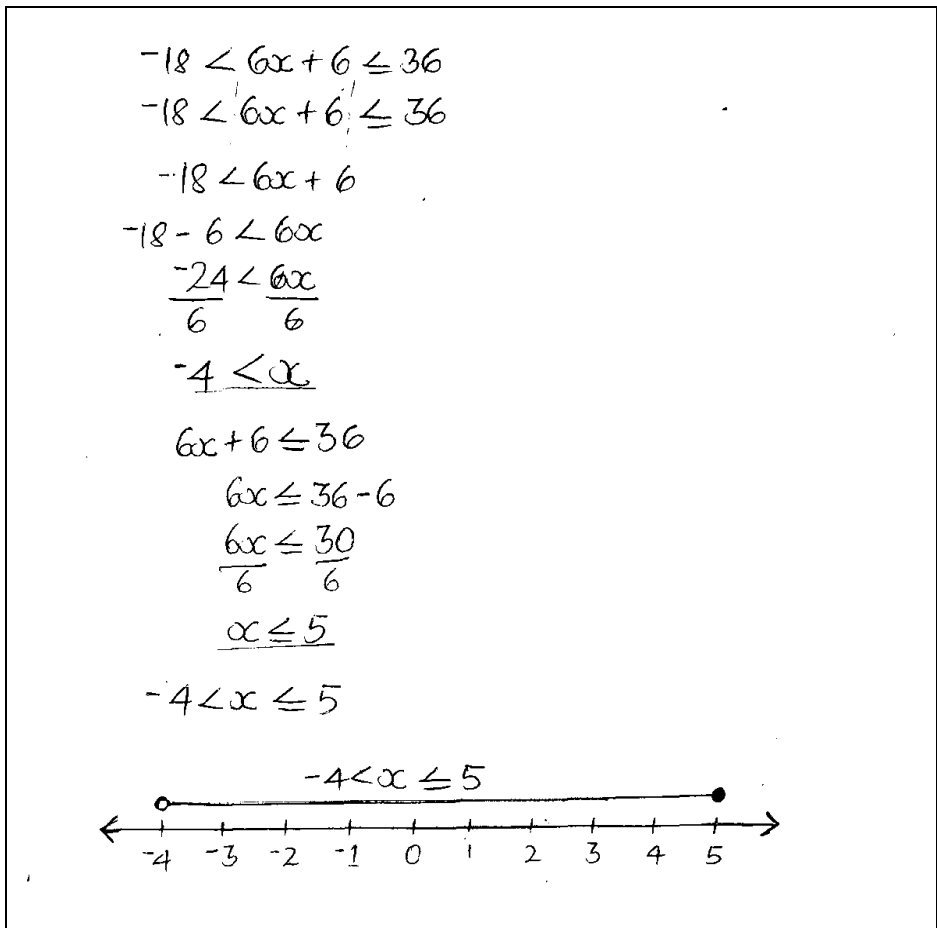 -18 < 6x + 6 ≤ 36
-18 < 6x + 6 ≤ 36
-18 < 6x + 6
-18 - 6 < 6x
-24/6 < 6x/6
-4 < x
6x + 6 ≤ 36
6x ≤ 36 - 6
6x/6 ≤ 30/6
x ≤ 5
-4 < x ≤ 5
-4 < x ≤ 5
-4 -3 -2 -1 0 1 2 3 4 5